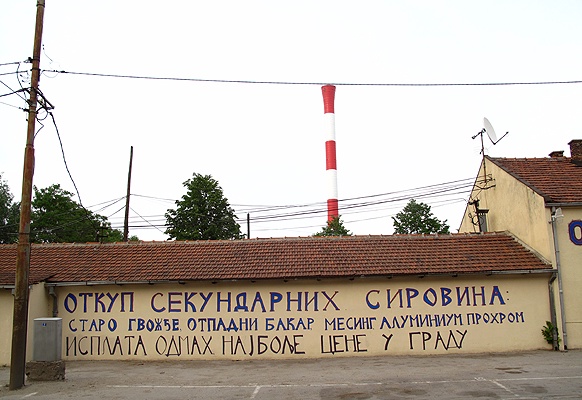 ОТКУП СЕКУНДАРНИХ СИРОВИНА:
СТАРО ГВОЖЂЕ ОТПАДНИ БАКАР МЕСИНГ АЛУМИНИУМ ПРОХРОМ
ИСПЛАТА ОДМАХ НАЈБОЉЕ ЦЕНЕ У ГРАДУ